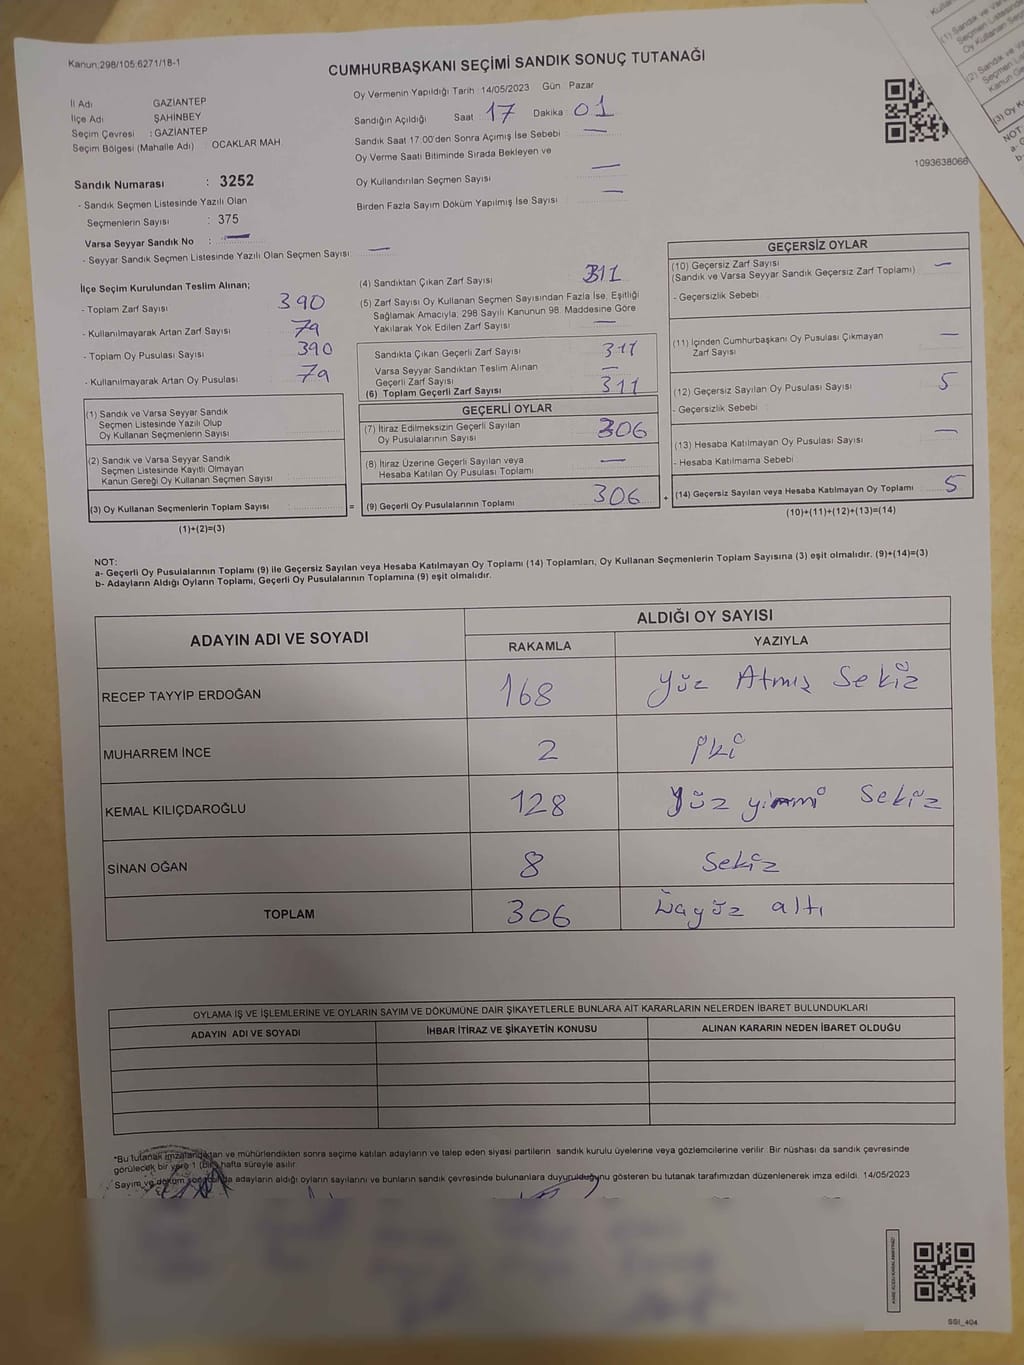 Kanun;298/105;6271/18-1
CUMHURBAŞKANI SEÇİMİ SANDIK SONUÇ TUTANAĞI
İl Adı GAZİANTEP
İlçe Adı ŞAHİNBEY
Seçim Çevresi : GAZİANTEP
Seçim Bölgesi (Mahalle Adı) OCAKLAR MAH.
Oy Vermenin Yapıldığı Tarih :14/05/2023 Gün Pazar
Sandığın Açıldığı Saat 17 Dakika 01
Sandık Saat 17:00'den Sonra Açımış İse Sebebi —
Oy Verme Saati Bitiminde Sırada Bekleyen ve
Oy Kullandırılan Seçmen Sayısı —
Birden Fazla Sayım Döküm Yapılmış İse Sayısı —
1093638066
Sandık Numarası : 3252
- Sandık Seçmen Listesinde Yazılı Olan
Seçmenlerin Sayısı : 375
Varsa Seyyar Sandık No : —
- Seyyar Sandık Seçmen Listesinde Yazılı Olan Seçmen Sayısı: —
İlçe Seçim Kurulundan Teslim Alınan;
- Toplam Zarf Sayısı 390
- Kullanılmayarak Artan Zarf Sayısı 79
- Toplam Oy Pusulası Sayısı 390
- Kullanılmayarak Artan Oy Pusulası 79
(1) Sandık ve Varsa Seyyar Sandık
Seçmen Listesinde Yazılı Olup
Oy Kullanan Seçmenlerin Sayısı
(2) Sandık ve Varsa Seyyar Sandık
Seçmen Listesinde Kayıtlı Olmayan
Kanun Gereği Oy Kullanan Seçmen Sayısı
(3) Oy Kullanan Seçmenlerin Toplam Sayısı =
(1)+(2)=(3)
(4) Sandıktan Çıkan Zarf Sayısı 311
(5) Zarf Sayısı Oy Kullanan Seçmen Sayısından Fazla İse, Eşitliği
Sağlamak Amacıyla; 298 Sayılı Kanunun 98. Maddesine Göre
Yakılarak Yok Edilen Zarf Sayısı —
Sandıkta Çıkan Geçerli Zarf Sayısı 311
Varsa Seyyar Sandıktan Teslim Alınan
Geçerli Zarf Sayısı —
(6) Toplam Geçerli Zarf Sayısı 311
GEÇERLİ OYLAR
(7) İtiraz Edilmeksizin Geçerli Sayılan
Oy Pusulalarının Sayısı 306
(8) İtiraz Üzerine Geçerli Sayılan veya
Hesaba Katılan Oy Pusulası Toplamı —
(9) Geçerli Oy Pusulalarının Toplamı 306 +
GEÇERSİZ OYLAR
(10) Geçersiz Zarf Sayısı —
(Sandık ve Varsa Seyyar Sandık Geçersiz Zarf Toplamı)
- Geçersizlik Sebebi
(11) İçinden Cumhurbaşkanı Oy Pusulası Çıkmayan
Zarf Sayısı —
(12) Geçersiz Sayılan Oy Pusulası Sayısı 5
- Geçersizlik Sebebi
(13) Hesaba Katılmayan Oy Pusulası Sayısı —
- Hesaba Katılmama Sebebi
(14) Geçersiz Sayılan veya Hesaba Katılmayan Oy Toplamı 5
(10)+(11)+(12)+(13)=(14)
NOT:
a- Geçerli Oy Pusulalarının Toplamı (9) ile Geçersiz Sayılan veya Hesaba Katılmayan Oy Toplamı (14) Toplamları, Oy Kullanan Seçmenlerin Toplam Sayısına (3) eşit olmalıdır. (9)+(14)=(3)
b- Adayların Aldığı Oyların Toplamı, Geçerli Oy Pusulalarının Toplamına (9) eşit olmalıdır.
ADAYIN ADI VE SOYADI ALDIĞI OY SAYISI
RAKAMLA YAZIYLA
RECEP TAYYİP ERDOĞAN 168 Yüz Atmış Sekiz
MUHARREM İNCE 2 iki
KEMAL KILIÇDAROĞLU 128 Yüz yirmi Sekiz
SİNAN OĞAN 8 Sekiz
TOPLAM 306 altı
OYLAMA İŞ VE İŞLEMLERİNE VE OYLARIN SAYIM VE DÖKÜMÜNE DAİR ŞİKAYETLERLE BUNLARA AİT KARARLARIN NELERDEN İBARET BULUNDUKLARI
ADAYIN ADI VE SOYADI İHBAR İTİRAZ VE ŞİKAYETİN KONUSU ALINAN KARARIN NEDEN İBARET OLDUĞU
*Bu tutanak imzalandıktan ve mühürlendikten sonra seçime katılan adayların ve talep eden siyasi partilerin sandık kurulu üyelerine veya gözlemcilerine verilir. Bir nüshası da sandık çevresinde
görülecek bir yere 1 (bir) hafta süreyle asılır.
Sayım ve döküm sonucunda adayların aldığı oyların sayılarını ve bunların sandık çevresinde bulunanlara duyurulduğunu gösteren bu tutanak tarafımızdan düzenlenerek imza edildi. 14/05/2023
SSI_404